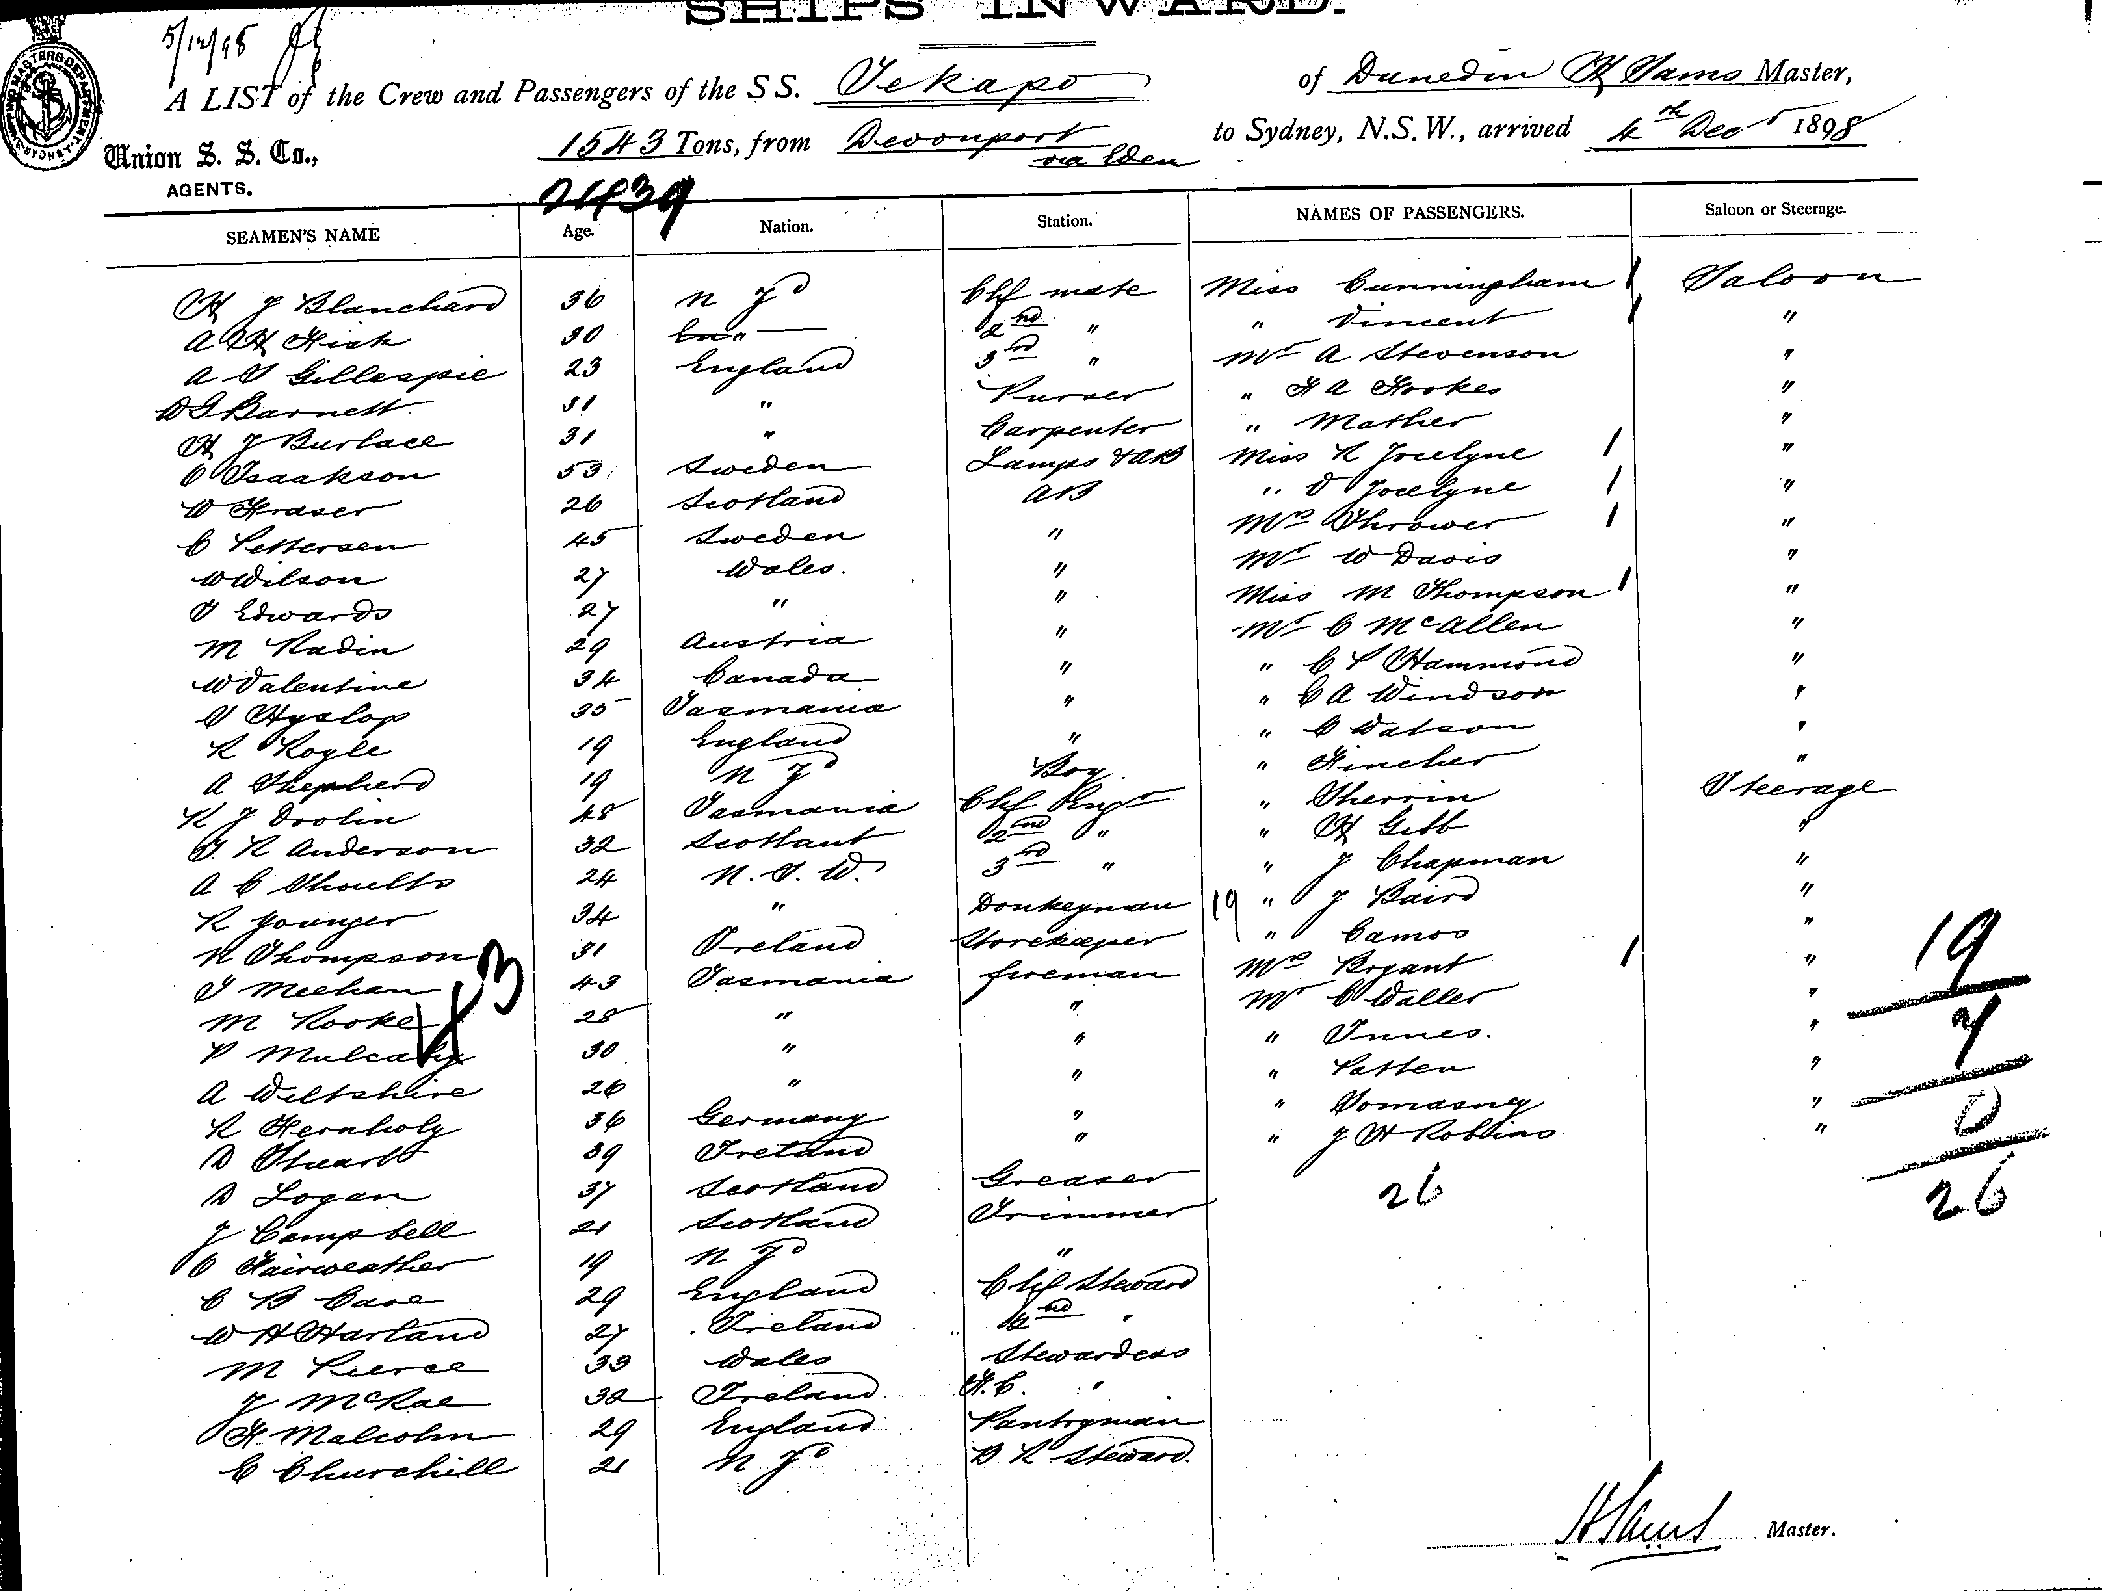 SHIPS INWARD.
5/12/98
A LIST of the Crew and Passengers of the S S. Tekapo of Dunedin H Tams Master,
Union S. S. Co., 1543 Tons, from Devonport via Eden to Sydney, N.S.W., arrived 4th Dec 1898
AGENTS.
SEAMEN'S NAME Age. Nation. Station. NAMES OF PASSENGERS. Saloon or Steerage.
H J Blanchard 36 N Zd Chf mate Miss Cunningham Saloon
A H Fick 30 " 2nd " " Vincent "
A T Gillespie 23 England 3rd " Mr A Stevenson "
W G Barnett 31 " Purser " F A Fookes "
H J Burlace 31 " Carpenter " Mather "
C Isaakson 53 Sweden Lamps & AB Miss R Jocelyne "
W Fraser 26 Scotland AB " D Jocelyne "
C Pettersen 45 Sweden " Mrs Thrower "
W Wilson 27 Wales " Mr W Davis "
T Edwards 27 " " Miss M Thompson "
M Radin 29 Austria " Mr C McAllen "
W Valentine 34 Canada " " C P Hammond "
T Hyslop 35 Tasmania " " C A Windsor "
R Royle 19 England " " C Watson "
A Shepherd 19 N Zd Boy " Fincher "
R J Drolin 48 Tasmania Chf Engr " Sherrin Steerage
T. R Anderson 32 Scotland 2nd " " H Gibb "
A C Shoults 24 N. S. W. 3rd " " J Chapman "
R Younger 34 " Donkeyman 19 " J Baird "
N Thompson 31 Ireland Storekeeper " Camos "
T Meehan 43 Tasmania fireman Mrs Bryant " 19
M Rooke 28 " " Mr C Waller "
P Mulcahy 30 " " " Innes. " 7
A Wiltshire 26 " " " Patten "
R Hernholy 36 Germany " " Tomasney " 0
D Stuart 39 Ireland " " J H Robbins "
D Logan 37 Scotland Greaser 26 26
J Campbell 21 Scotland Trimmer
C Fairweather 19 N Zd "
C B Case 29 England Chf Steward
W H Harland 27 Ireland 2nd "
M Pierce 33 Wales Stewardess
J McRae 32 Ireland F. C. "
H. Malcolm 29 England Pantryman
C Churchill 21 N Zd B R Steward.
H Tams Master.